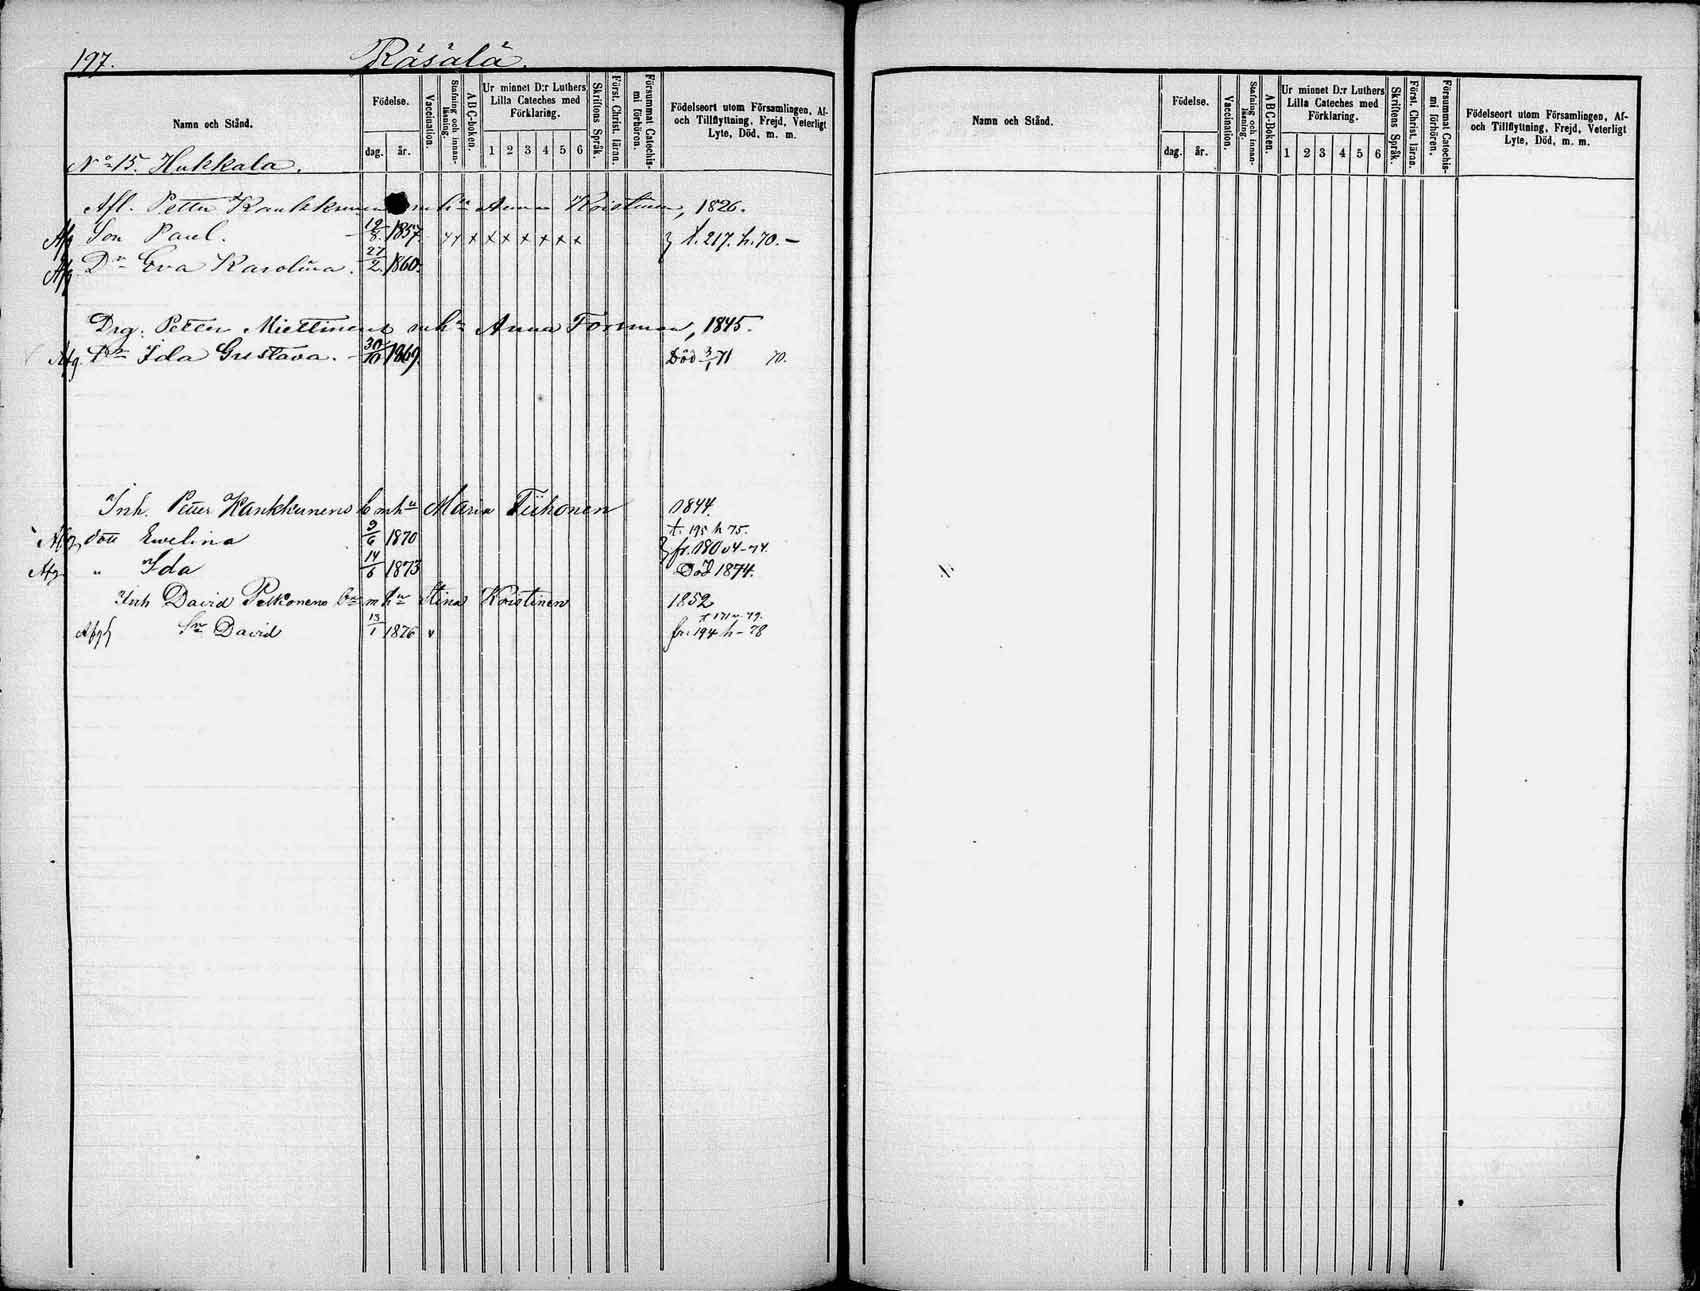 197. Räsälä.
Namn och Stånd.
Födelse.
dag. år.
Vaccination.
Stafning och innan-läsning.
ABC-boken.
Ur minnet D:r Luthers Lilla Cateches med Förklaring.
1 2 3 4 5 6
Skriftens Språk.
Först. Christ. läran.
Försummat Catechis-mi förhören.
Födelseort utom Församlingen, Af- och Tillflyttning, Frejd, Veterligt Lyte, Död, m. m.
No 15. Hukkala.
Afl. Petter Kankkunen mhu Anna Koistinen, 1826.
Afg Son Paul. 12/8 1857. x x x x x x x x x } t. 217. h. 70.-
Afg Dr Eva Karolina. 27/2 1860.
Drg. Petter Miettinens mhu Anna Forsman, 1845.
Afg. Dr Ida Gustava. 30/10 1869. Död 3/1 71 70.
Inh. Petter Kankkunens b mhu Maria Tiihonen 1844.
t. 195 h 75.
Afg dott Ewelina 9/6 1870 } fr. 180 v 4-74.
Afg " Ida 14/6 1873 Död 1874.
Inh David Pelkonens Bn m hu Stina Koistinen 1852
t 171 v-79.
Afg Sn David 13/1 1876 v fr. 194 h-78
Namn och Stånd.
Födelse.
dag. år.
Vaccination.
Stafning och innan-läsning.
ABC-Boken.
Ur minnet D:r Luthers Lilla Cateches med Förklaring.
1 2 3 4 5 6
Skriftens Språk.
Först. Christ. läran.
Försummat Catechis-mi förhören.
Födelseort utom Församlingen, Af- och Tillflyttning, Frejd, Veterligt Lyte, Död, m. m.